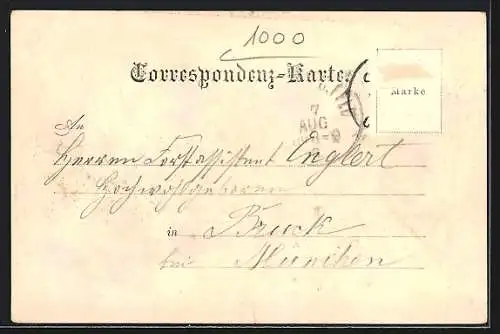 1000
Correspondenz-Karte
Marke
7
AUG
An
Herren Forstassistent Englert
Hochwohlgeboren
in Bruck
bei München